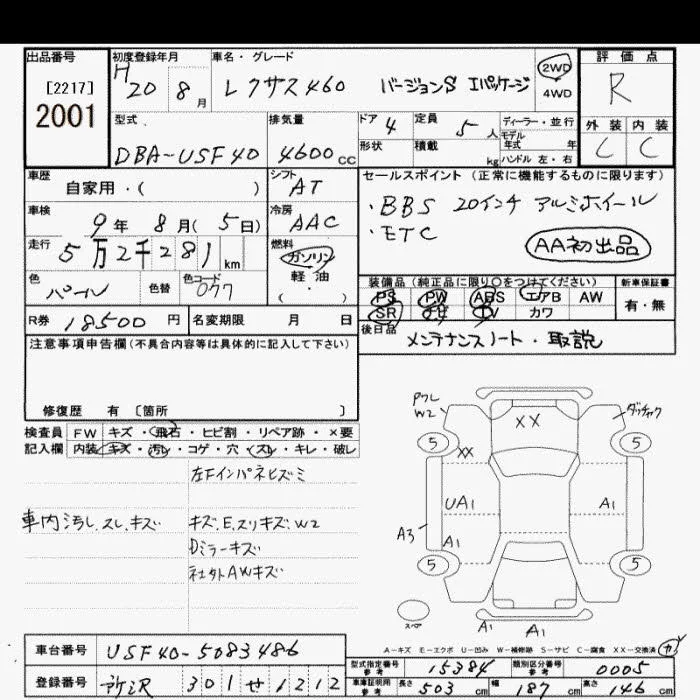 出品番号 初度登録年月 車名・グレード 評価点
[2217] H20 8月 レクサス460 バージョンS Iパッケージ 2WD R
2001 4WD
型式 排気量 ドア 定員 ディーラー・並行 外装 内装
DBA-USF40 4600cc 4 5人 モデル年式 年 C C
形状 積載 kg ハンドル 左・右
車歴 シフト セールスポイント(正常に機能するものに限ります)
自家用・( ) AT ・BBS 20インチ アルミホイール
車検 冷房 ・ETC
9年 8月(5日) AAC AA初出品
走行 燃料
5万2千281km ガソリン
軽・油
・( )
色 色替 色コード 装備品(純正品に限り○をつけてください) 新車保証書
パール 077 PS PW ABS エアB AW 有・無
SR ナビ TV カワ
R券 18500円 名変期限 月 日 後日品
メンテナンスノート・取説
注意事項申告欄(不具合内容等は具体的に記入して下さい)
修復歴 有 〔箇所 〕
検査員 FW キズ・飛石・ヒビ割・リペア跡・×要
記入欄 内装 キズ・汚レ・コゲ・穴・スレ・キレ・破レ
左Fインパネヒズミ
車内汚レ.スレ.キズ キズ.E.スリキズ.W2
Dミラーキズ
社外AWキズ
Pフレ
W2
ダッチャク
XX
5 5
XX
UA1 A1
A3 A1
5 5
スペア
A1 A1
A-キズ E-エクボ U-凹み W-補修跡 S-サビ C-腐食 XX-交換済
車台番号 USF40-5083486
型式指定番号 参考 15384 類別区分番号 参考 0005
登録番号 所沢 301せ1212
車庫証明用 参考 長さ 503cm 幅 187cm 高さ 146cm